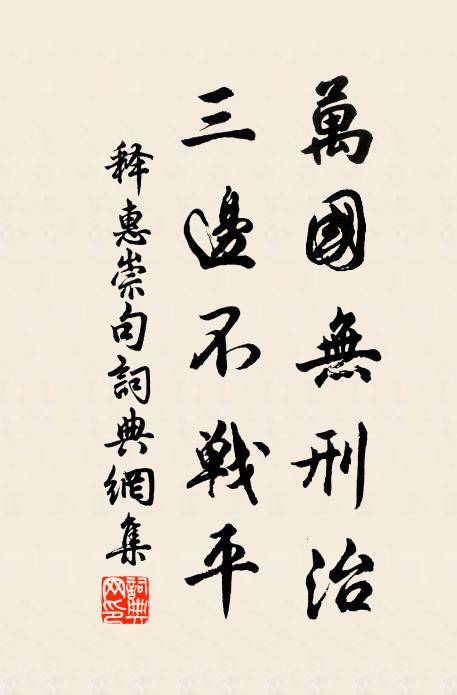 萬國無刑治
三邊不戰平
释惠崇句詞典網集
詞典網印